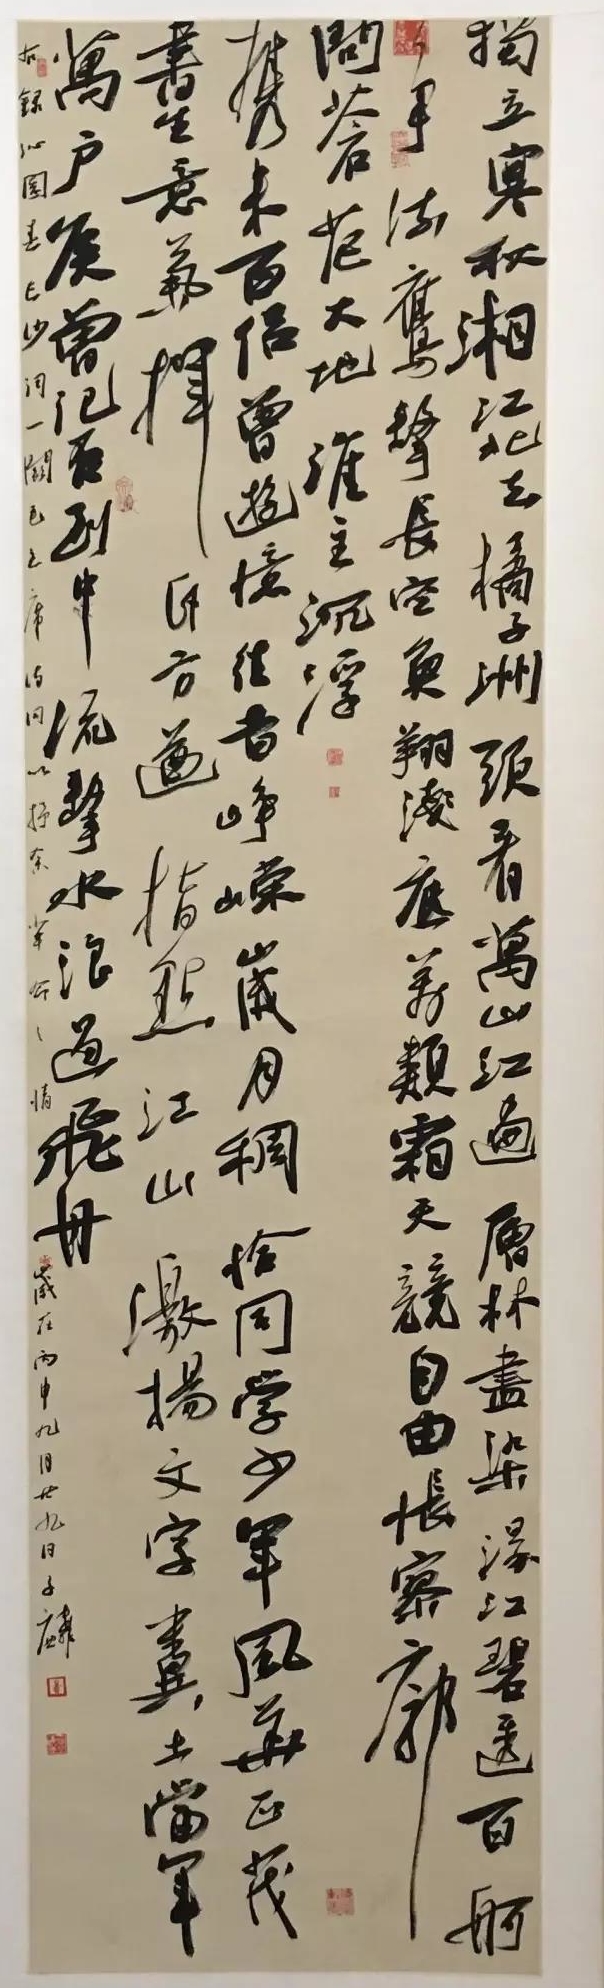 獨立寒秋湘江北去橘子洲頭看萬山江遍層林盡染漫江碧透百舸
爭流鷹擊長空魚翔淺底萬類霜天競自由悵寥廓
問蒼茫大地誰主沉浮
攜來百侶曾遊憶往昔崢嶸歲月稠恰同学少年風華正茂
書生意氣揮斥方遒指點江山激揚文字糞土當年
萬戶侯曾記否到中流擊水浪遏飛舟
右錄沁園春長沙詞一闋毛主席詩詞以抒 情歲在丙申九月廿九日子